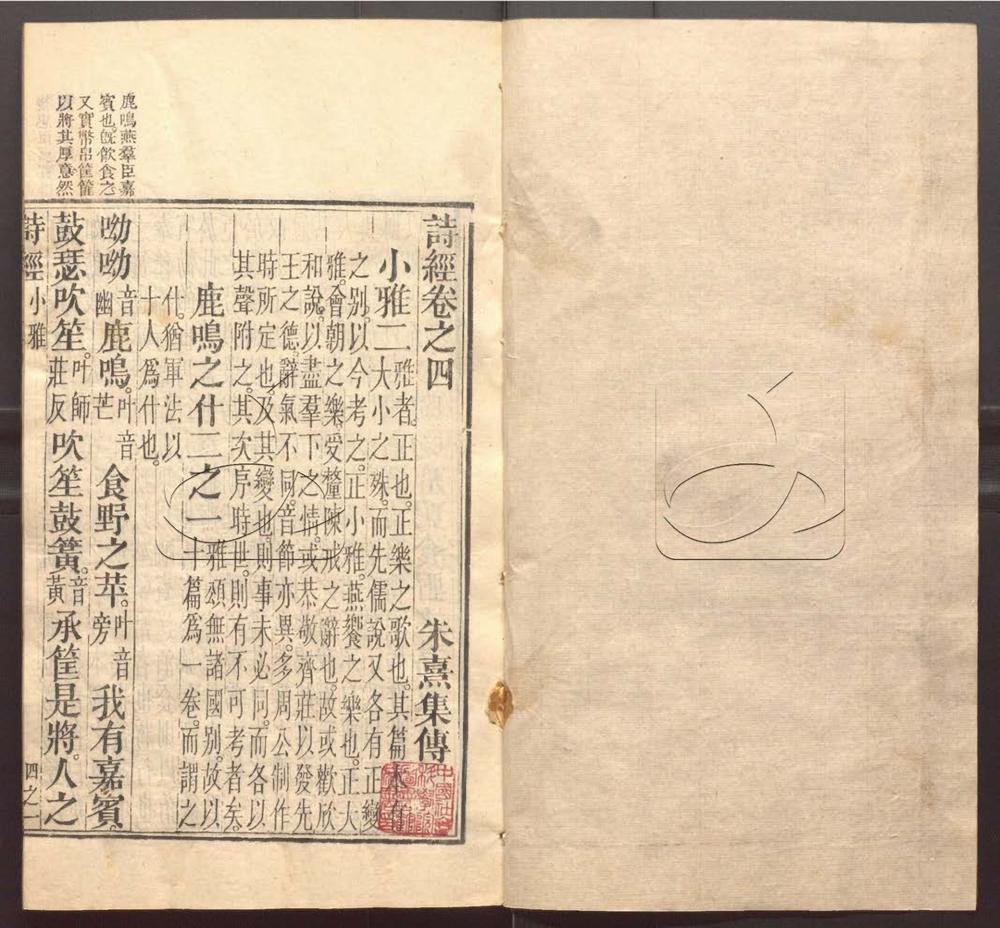 鹿鳴燕羣臣嘉
賓也。旣飮食之
又實幣帛筐篚
以將其厚意然
詩經卷之四 朱熹集傳
小雅二 雅者。正也。正樂之歌也。其篇本有
大小之殊。而先儒說又各有正變
之別。以今考之。正小雅。燕饗之樂也。正大
雅。會朝之樂。受釐陳戒之辭也。故或歡欣
和說。以盡羣下之情。或恭敬齊莊以發先
王之德。辭氣不同。音節亦異。多周公制作
時所定也。及其變也。則事未必同。而各以
其聲附之。其次序時世。則有不可考者矣。
鹿鳴之什二之一 雅頌無諸國別。故以
十篇爲一卷。而謂之
什。猶軍法以
十人爲什也。
呦呦音幽鹿鳴。叶音芒食野之苹。叶音旁我有嘉賓。
鼓瑟吹笙。叶師莊反吹笙鼓簧。音黃承筐是將。人之
詩經 小雅 四之一